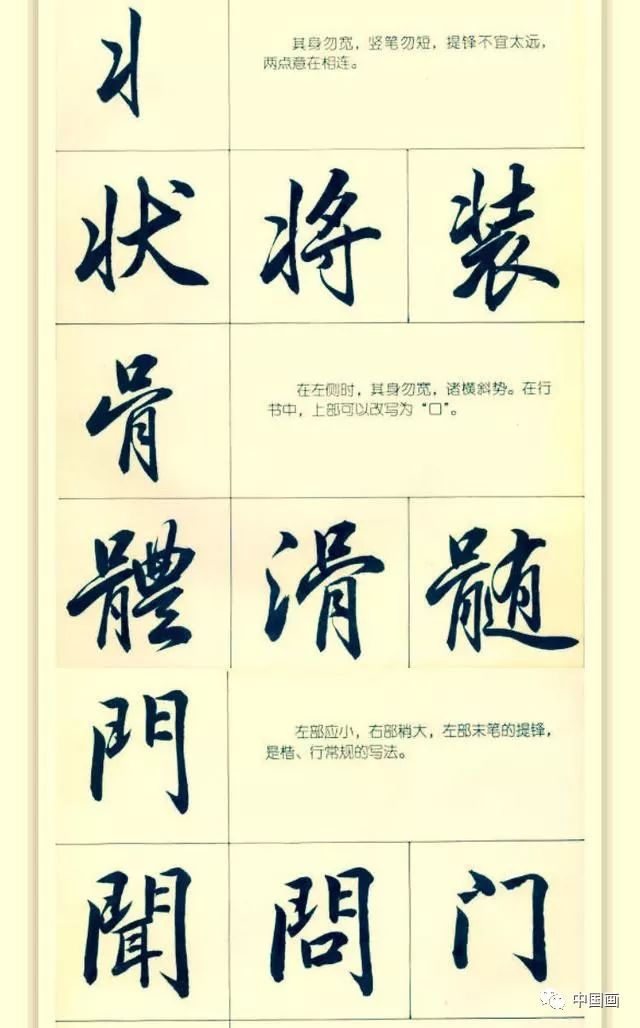 丬
其身勿宽，竖笔勿短，提锋不宜太远，
两点意在相连。
状 将 装
骨
在左侧时，其身勿宽，诸横斜势。在行
书中，上部可以改写为“口”。
體 滑 髓
門
左部应小，右部稍大，左部末笔的提锋，
是楷、行常规的写法。
聞 問 门
中国画